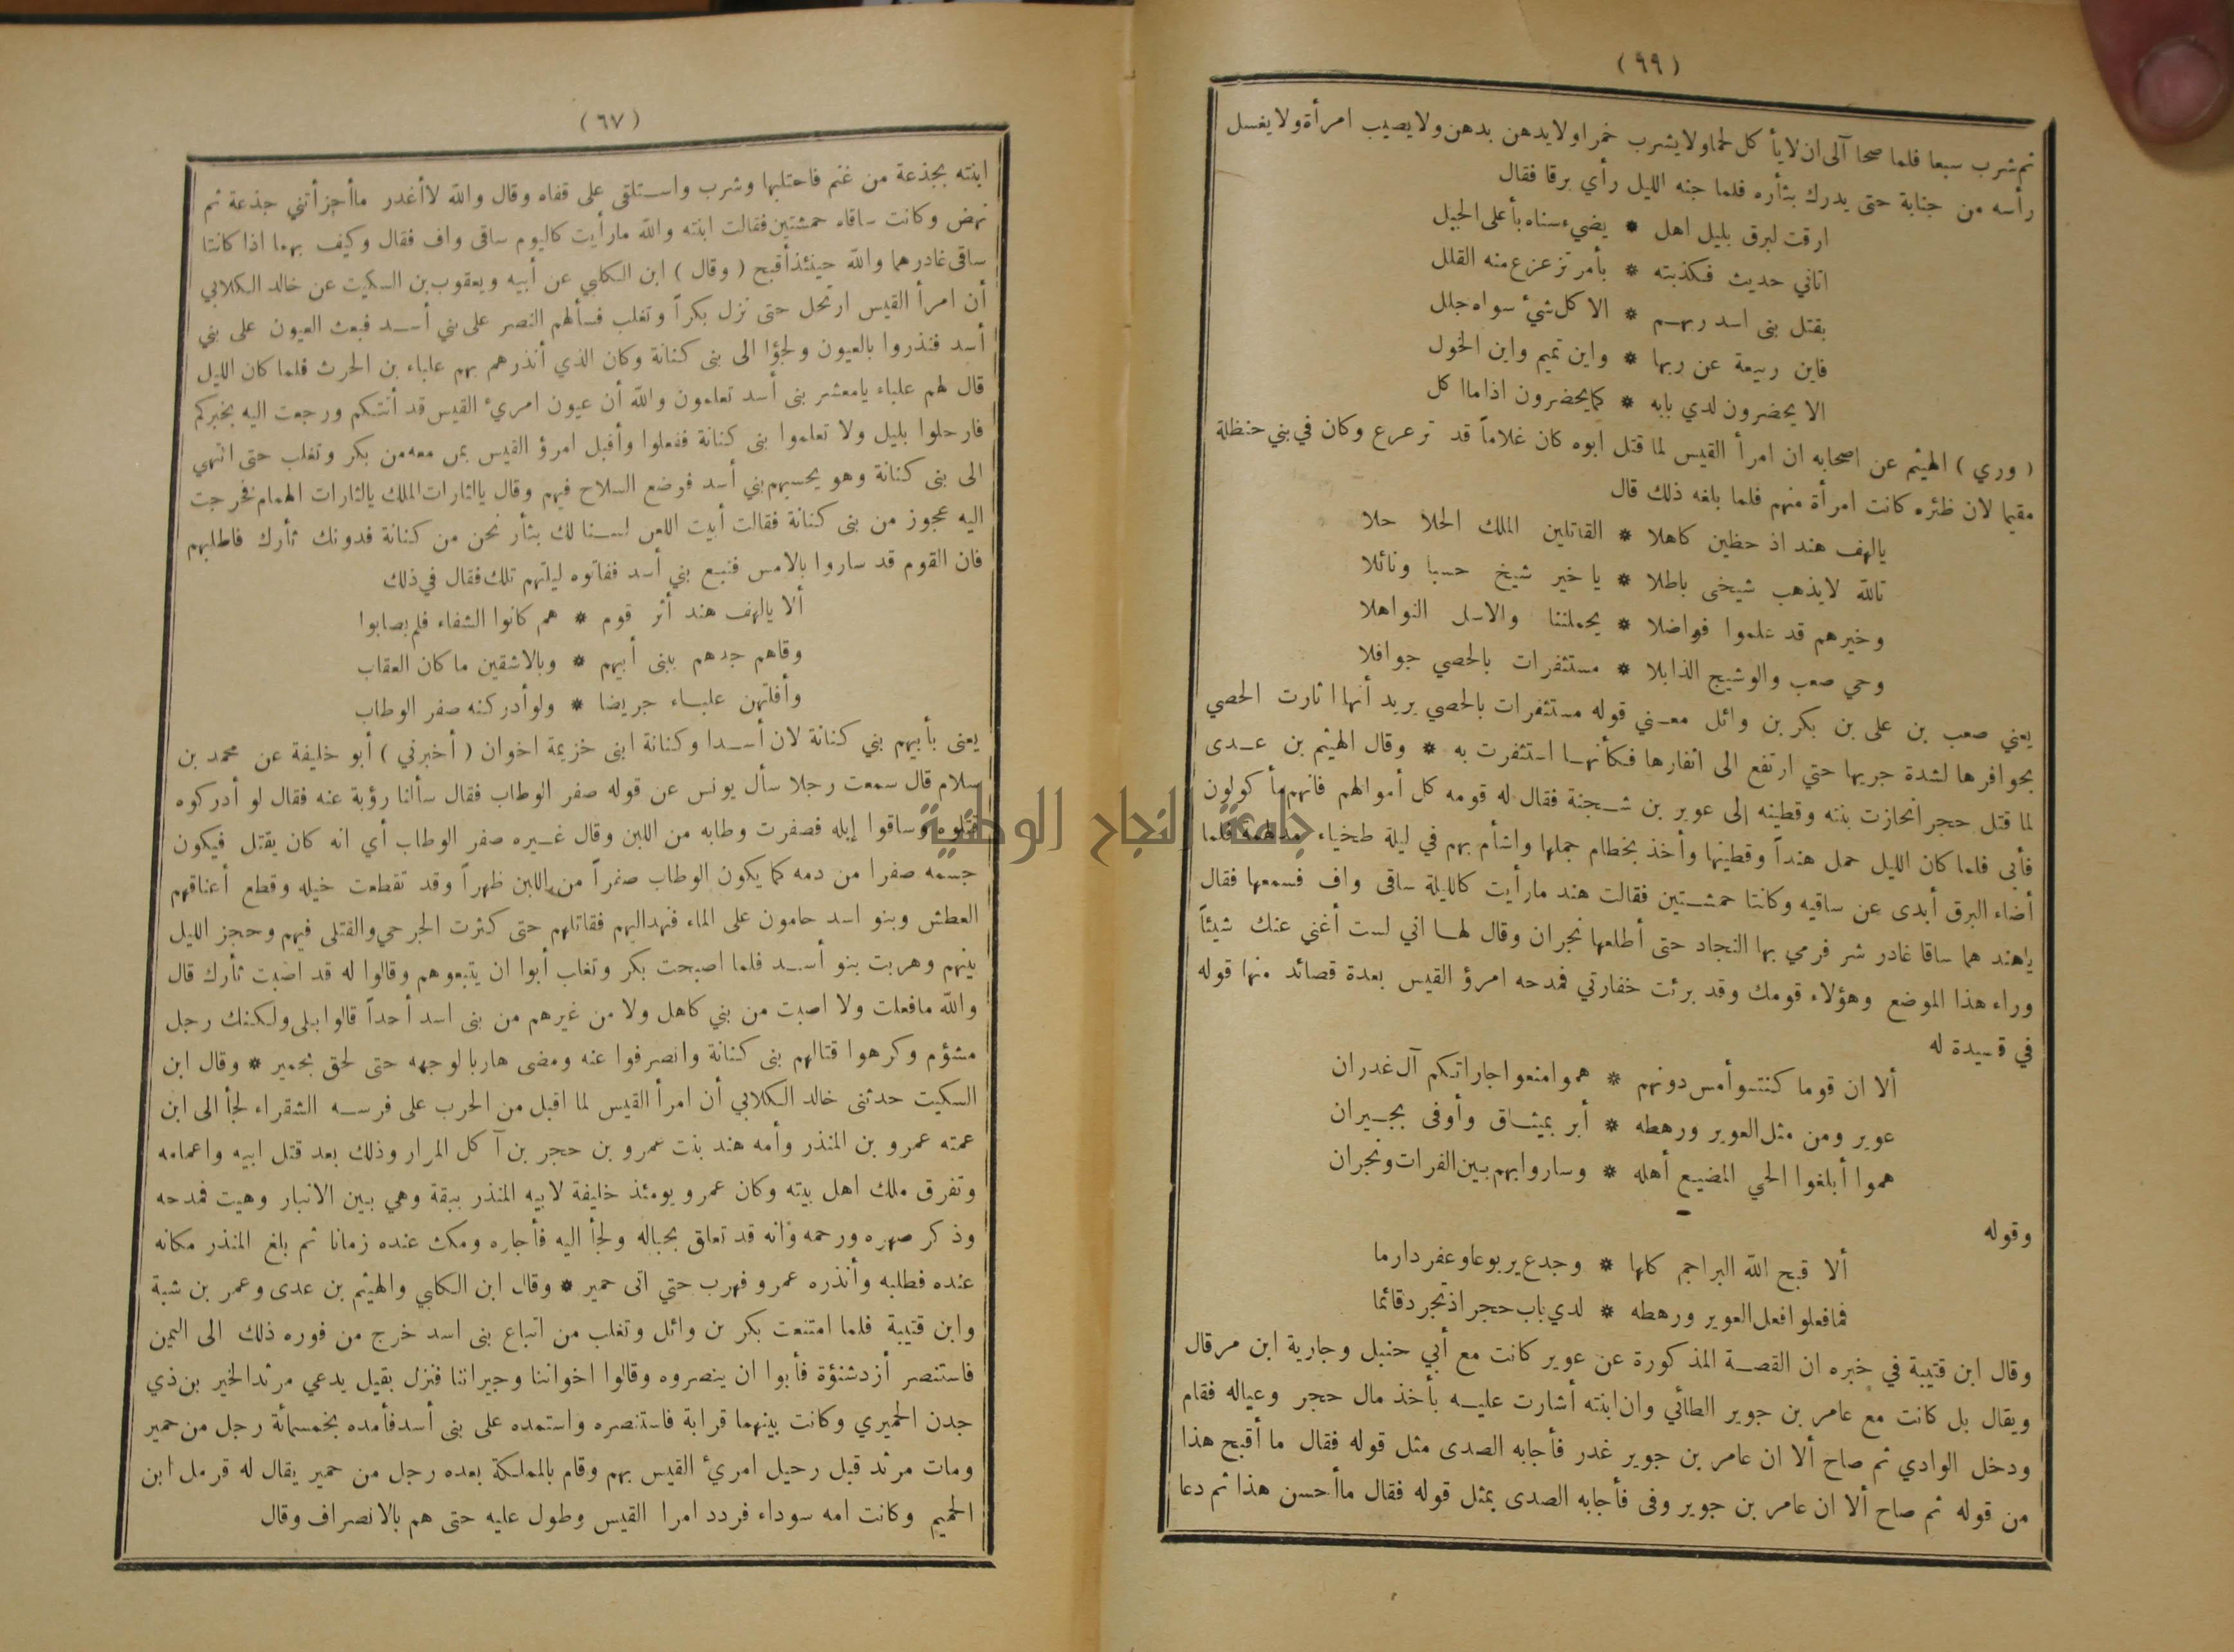 (٩٩)
ثم شرب سبعا فلما صحا آلى ان لا يأكل لحما ولا يشرب خمرا ولا يدهن بدهن ولا يصيب امرأة ولا يغسل
رأسه من جنابة حتى يدرك بثأره فلما جنه الليل رأي برقا فقال
ارقت لبرق بليل اهل * يضيء سناه بأعلى الجبل
اتاني حديث فكذبته * بأمر تزعزع منه القلل
بقتل بنى اسد ربهم * الا كل شئ سواه جلل
فاين ربيعة عن ربها * واين تميم واين الخول
الا يحضرون لدي بابه * كما يحضرون اذا ما اكل
( وري ) الهيثم عن اصحابه ان امرأ القيس لما قتل ابوه كان غلاماً قد ترعرع وكان في بني حنظلة
مقيما لان ظئره كانت امرأة منهم فلما بلغه ذلك قال
يالهف هند اذ حظين كاهلا * القاتلين الملك الحلا حلا
تالله لايذهب شيخى باطلا * يا خير شيخ حسبا ونائلا
وخيرهم قد علموا فواضلا * يحملننا والاسل النواهلا
وحي صعب والوشيج الذابلا * مستثفرات بالحصي جوافلا
يعني صعب بن على بن بكر بن وائل معني قوله مستثفرات بالحصي يريد أنها اثارت الحصي
بحوافرها لشدة جريها حتي ارتفع الى اثفارها فكأنها استثفرت به * وقال الهيثم بن عدى
لما قتل حجر انحازت بنته وقطينه إلى عوير بن شجنة فقال له قومه كل أموالهم فانهم مأكولون
فأبى فلما كان الليل حمل هنداً وقطينها وأخذ بخطام جملها واشأم بهم في ليلة طخياء مدلهمة فلما
أضاء البرق أبدى عن ساقيه وكانتا حمشتين فقالت هند مارأيت كالليلة ساقى واف فسمعها فقال
ياهند هما ساقا غادر شر فرمي بها النجاد حتى أطلعها نجران وقال لها اني لست أغني عنك شيئاً
وراء هذا الموضع وهؤلاء قومك وقد برئت خفارتي فمدحه امرؤ القيس بعدة قصائد منها قوله
في قصيدة له
ألا ان قوما كنتموا أمس دونهم * هموا منعوا جاراتكم آل غدران
عوير ومن مثل العوير ورهطه * أبر بميثاق وأوفى بجيران
هموا أبلغوا الحي المضيع أهله * وساروا بهم بين الفرات ونجران
وقوله
ألا قبح الله البراجم كلها * وجدع يربوعا وعفر دارما
فما فعلوا فعل العوير ورهطه * لدي باب حجر اذ تجرد قائما
وقال ابن قتيبة في خبره ان القصة المذكورة عن عوير كانت مع أبي حنبل وجارية ابن مر قال
ويقال بل كانت مع عامر بن جوير الطائي وان ابنته أشارت عليه بأخذ مال حجر وعياله فقام
ودخل الوادي ثم صاح ألا ان عامر بن جوير غدر فأجابه الصدى مثل قوله فقال ما أقبح هذا
من قوله ثم صاح ألا ان عامر بن جوير وفى فأجابه الصدى بمثل قوله فقال ما أحسن هذا ثم دعا
(٦٧)
ابنته بجذعة من غنم فاحتلبها وشرب واستلقى على قفاه وقال والله لا أغدر ما أجزأتني جذعة ثم
نهض وكانت ساقاه حمشتين فقالت ابنته والله مارأيت كاليوم ساقى واف فقال وكيف بهما اذا كانتا
ساقى غادر هما والله حينئذ أقبح ( وقال ) ابن الكلبي عن أبيه ويعقوب بن السكيت عن خالد الكلابي
أن امرأ القيس ارتحل حتى نزل بكراً وتغلب فسألهم النصر على بني أسد فبعث العيون على بني
أسد فنذروا بالعيون ولجؤا الى بنى كنانة وكان الذي أنذرهم بهم علباء بن الحرث فلما كان الليل
قال لهم علباء يامعشر بنى أسد تعلمون والله أن عيون امرئ القيس قد أتتكم ورجعت اليه بخبركم
فارحلوا بليل ولا تعلموا بنى كنانة ففعلوا وأقبل امرؤ القيس بمن معه من بكر وتغلب حتى انتهي
الى بنى كنانة وهو يحسبهم بني أسد فوضع السلاح فيهم وقال يالثارات الملك يالثارات الهمام فخرجت
اليه عجوز من بنى كنانة فقالت أبيت اللعن لسنا لك بثأر نحن من كنانة فدونك ثأرك فاطلبهم
فان القوم قد ساروا بالامس فتبع بني أسد ففاتوه ليلتهم تلك فقال في ذلك
ألا يالهف هند أثر قوم * هم كانوا الشفاء فلم يصابوا
وقاهم جدهم ببنى أبيهم * وبالاشقين ما كان العقاب
وأفلتهن علباء جريضا * ولو أدركنه صفر الوطاب
يعنى بأبيهم بني كنانة لان أسدا وكنانة ابنى خزيمة اخوان ( أخبرني ) أبو خليفة عن محمد بن
سلام قال سمعت رجلا سأل يونس عن قوله صفر الوطاب فقال سألنا رؤبة عنه فقال لو أدركوه
قتلوه وساقوا إبله فصفرت وطابه من اللبن وقال غيره صفر الوطاب أي انه كان يقتل فيكون
جسمه صفرا من دمه كما يكون الوطاب صفراً من اللبن ظهراً وقد تقطعت خيله وقطع أعناقهم
العطش وبنو اسد حامون على الماء فنهد اليهم فقاتلهم حتى كثرت الجرحي والقتلى فيهم وحجز الليل
بينهم وهربت بنو أسد فلما اصبحت بكر وتغلب أبوا ان يتبعوهم وقالوا له قد اصبت ثأرك قال
والله مافعلت ولا اصبت من بني كاهل ولا من غيرهم من بنى اسد أحداً قالوا بلى ولكنك رجل
مشؤم وكرهوا قتالهم بنى كنانة وانصرفوا عنه ومضى هاربا لوجهه حتى لحق بحمير * وقال ابن
السكيت حدثنى خالد الكلابي أن امرأ القيس لما اقبل من الحرب على فرسه الشقراء لجأ الى ابن
عمته عمرو بن المنذر وأمه هند بنت عمرو بن حجر بن آكل المرار وذلك بعد قتل ابيه واعمامه
وتفرق ملك اهل بيته وكان عمرو يومئذ خليفة لابيه المنذر ببقة وهي بين الانبار وهيت فمدحه
وذكر صهره ورحمه وانه قد تعلق بحباله ولجأ اليه فأجاره ومكث عنده زمانا ثم بلغ المنذر مكانه
عنده فطلبه وأنذره عمرو فهرب حتي اتى حمير * وقال ابن الكلبي والهيثم بن عدى وعمر بن شبة
وابن قتيبة فلما امتنعت بكر بن وائل وتغلب من اتباع بنى اسد خرج من فوره ذلك الى اليمن
فاستنصر أزد شنؤة فأبوا ان ينصروه وقالوا اخواننا وجيراننا فنزل بقيل يدعي مرثد الخير بن ذي
جدن الحميري وكانت بينهما قرابة فاستنصره واستمده على بنى أسد فأمده بخمسمائة رجل من حمير
ومات مرثد قبل رحيل امرئ القيس بهم وقام بالمملكة بعده رجل من حمير يقال له قرمل ابن
الحميم وكانت امه سوداء فردد امرا القيس وطول عليه حتى هم بالانصراف وقال
جامعة النجاح الوطنية